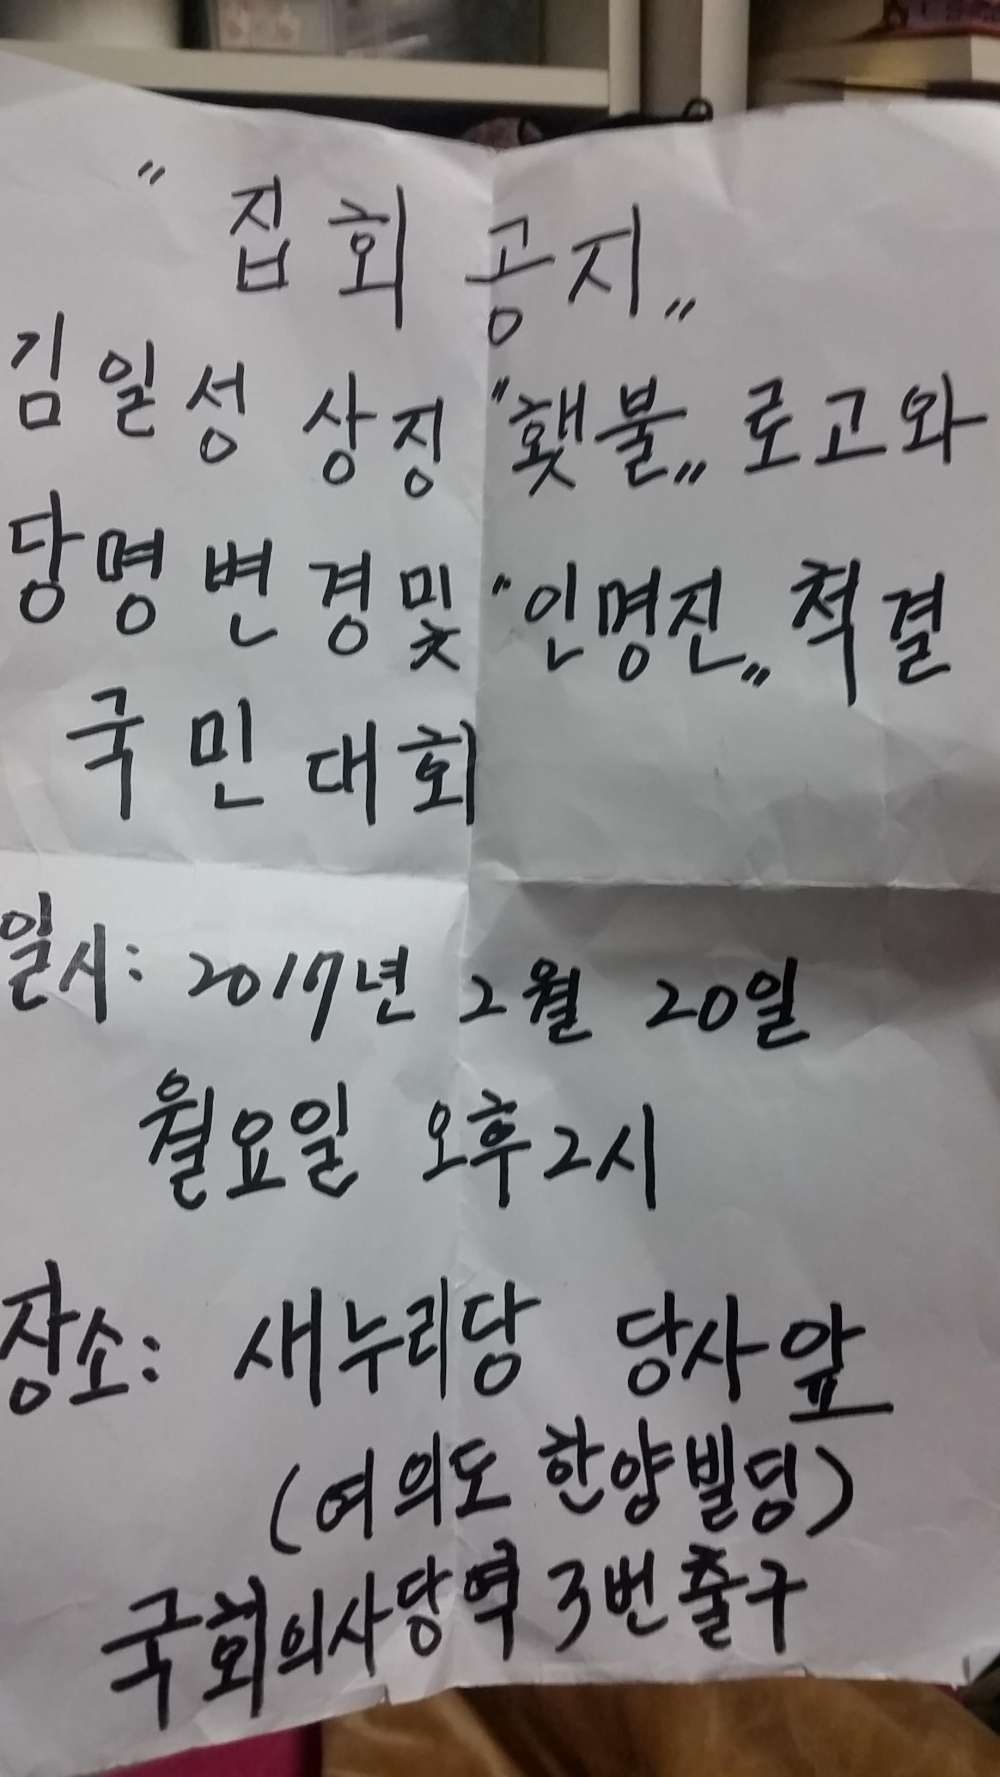 "집회 공지"
김일성 상징 "횃불" 로고와
당명변경및 "인명진" 척결
국민대회
일시: 2017년 2월 20일
월요일 오후2시
장소: 새누리당 당사앞
(여의도 한양빌딩)
국회의사당역 3번출구